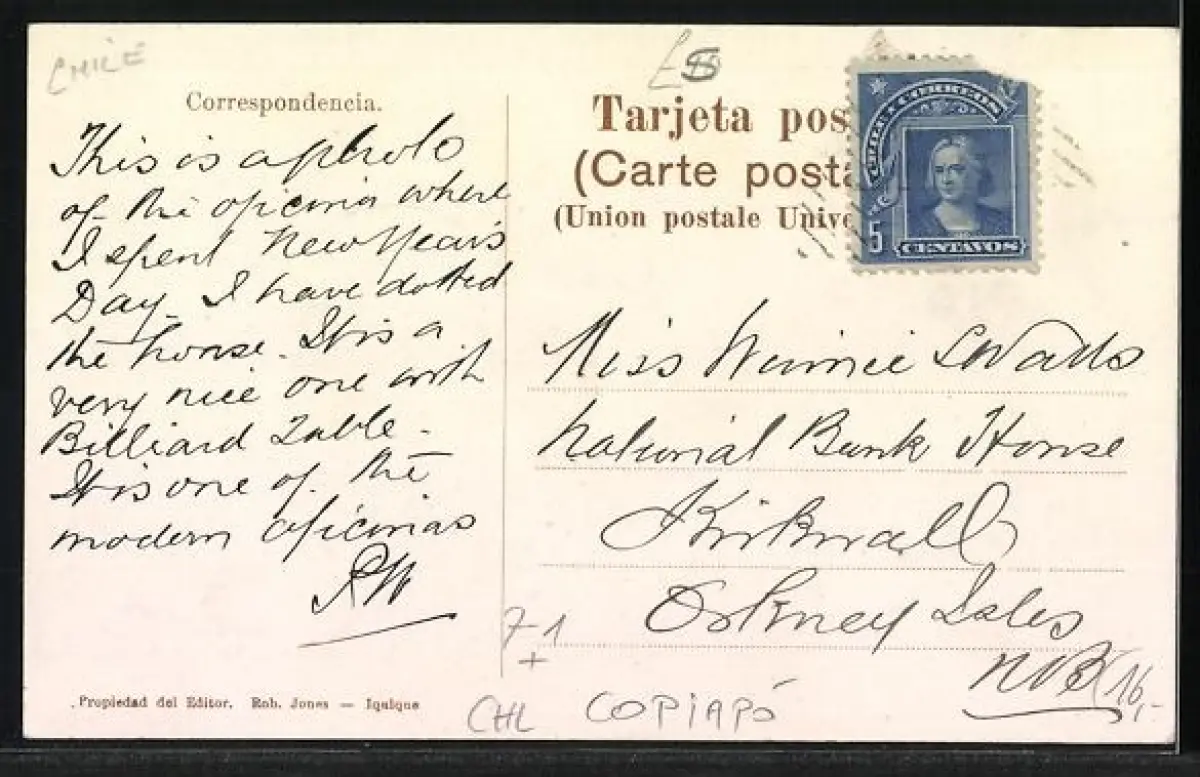 CHILE
Correspondencia.
This is a photo
of the oficina where
I spent New Year's
Day. I have dotted
the house. It is a
very nice one with
Billiard Table -
It is one of the
modern oficinas
RW
Propiedad del Editor. Rob. Jones — Iquique
Tarjeta pos
(Carte posta
(Union postale Unive
CHILE CORREOS
5
CENTAVOS
Miss Winnie Watts
National Bank House
Kirkwall
Orkney Isles
N.B.
16,-
7-1
+
CHL COPIAPÓ